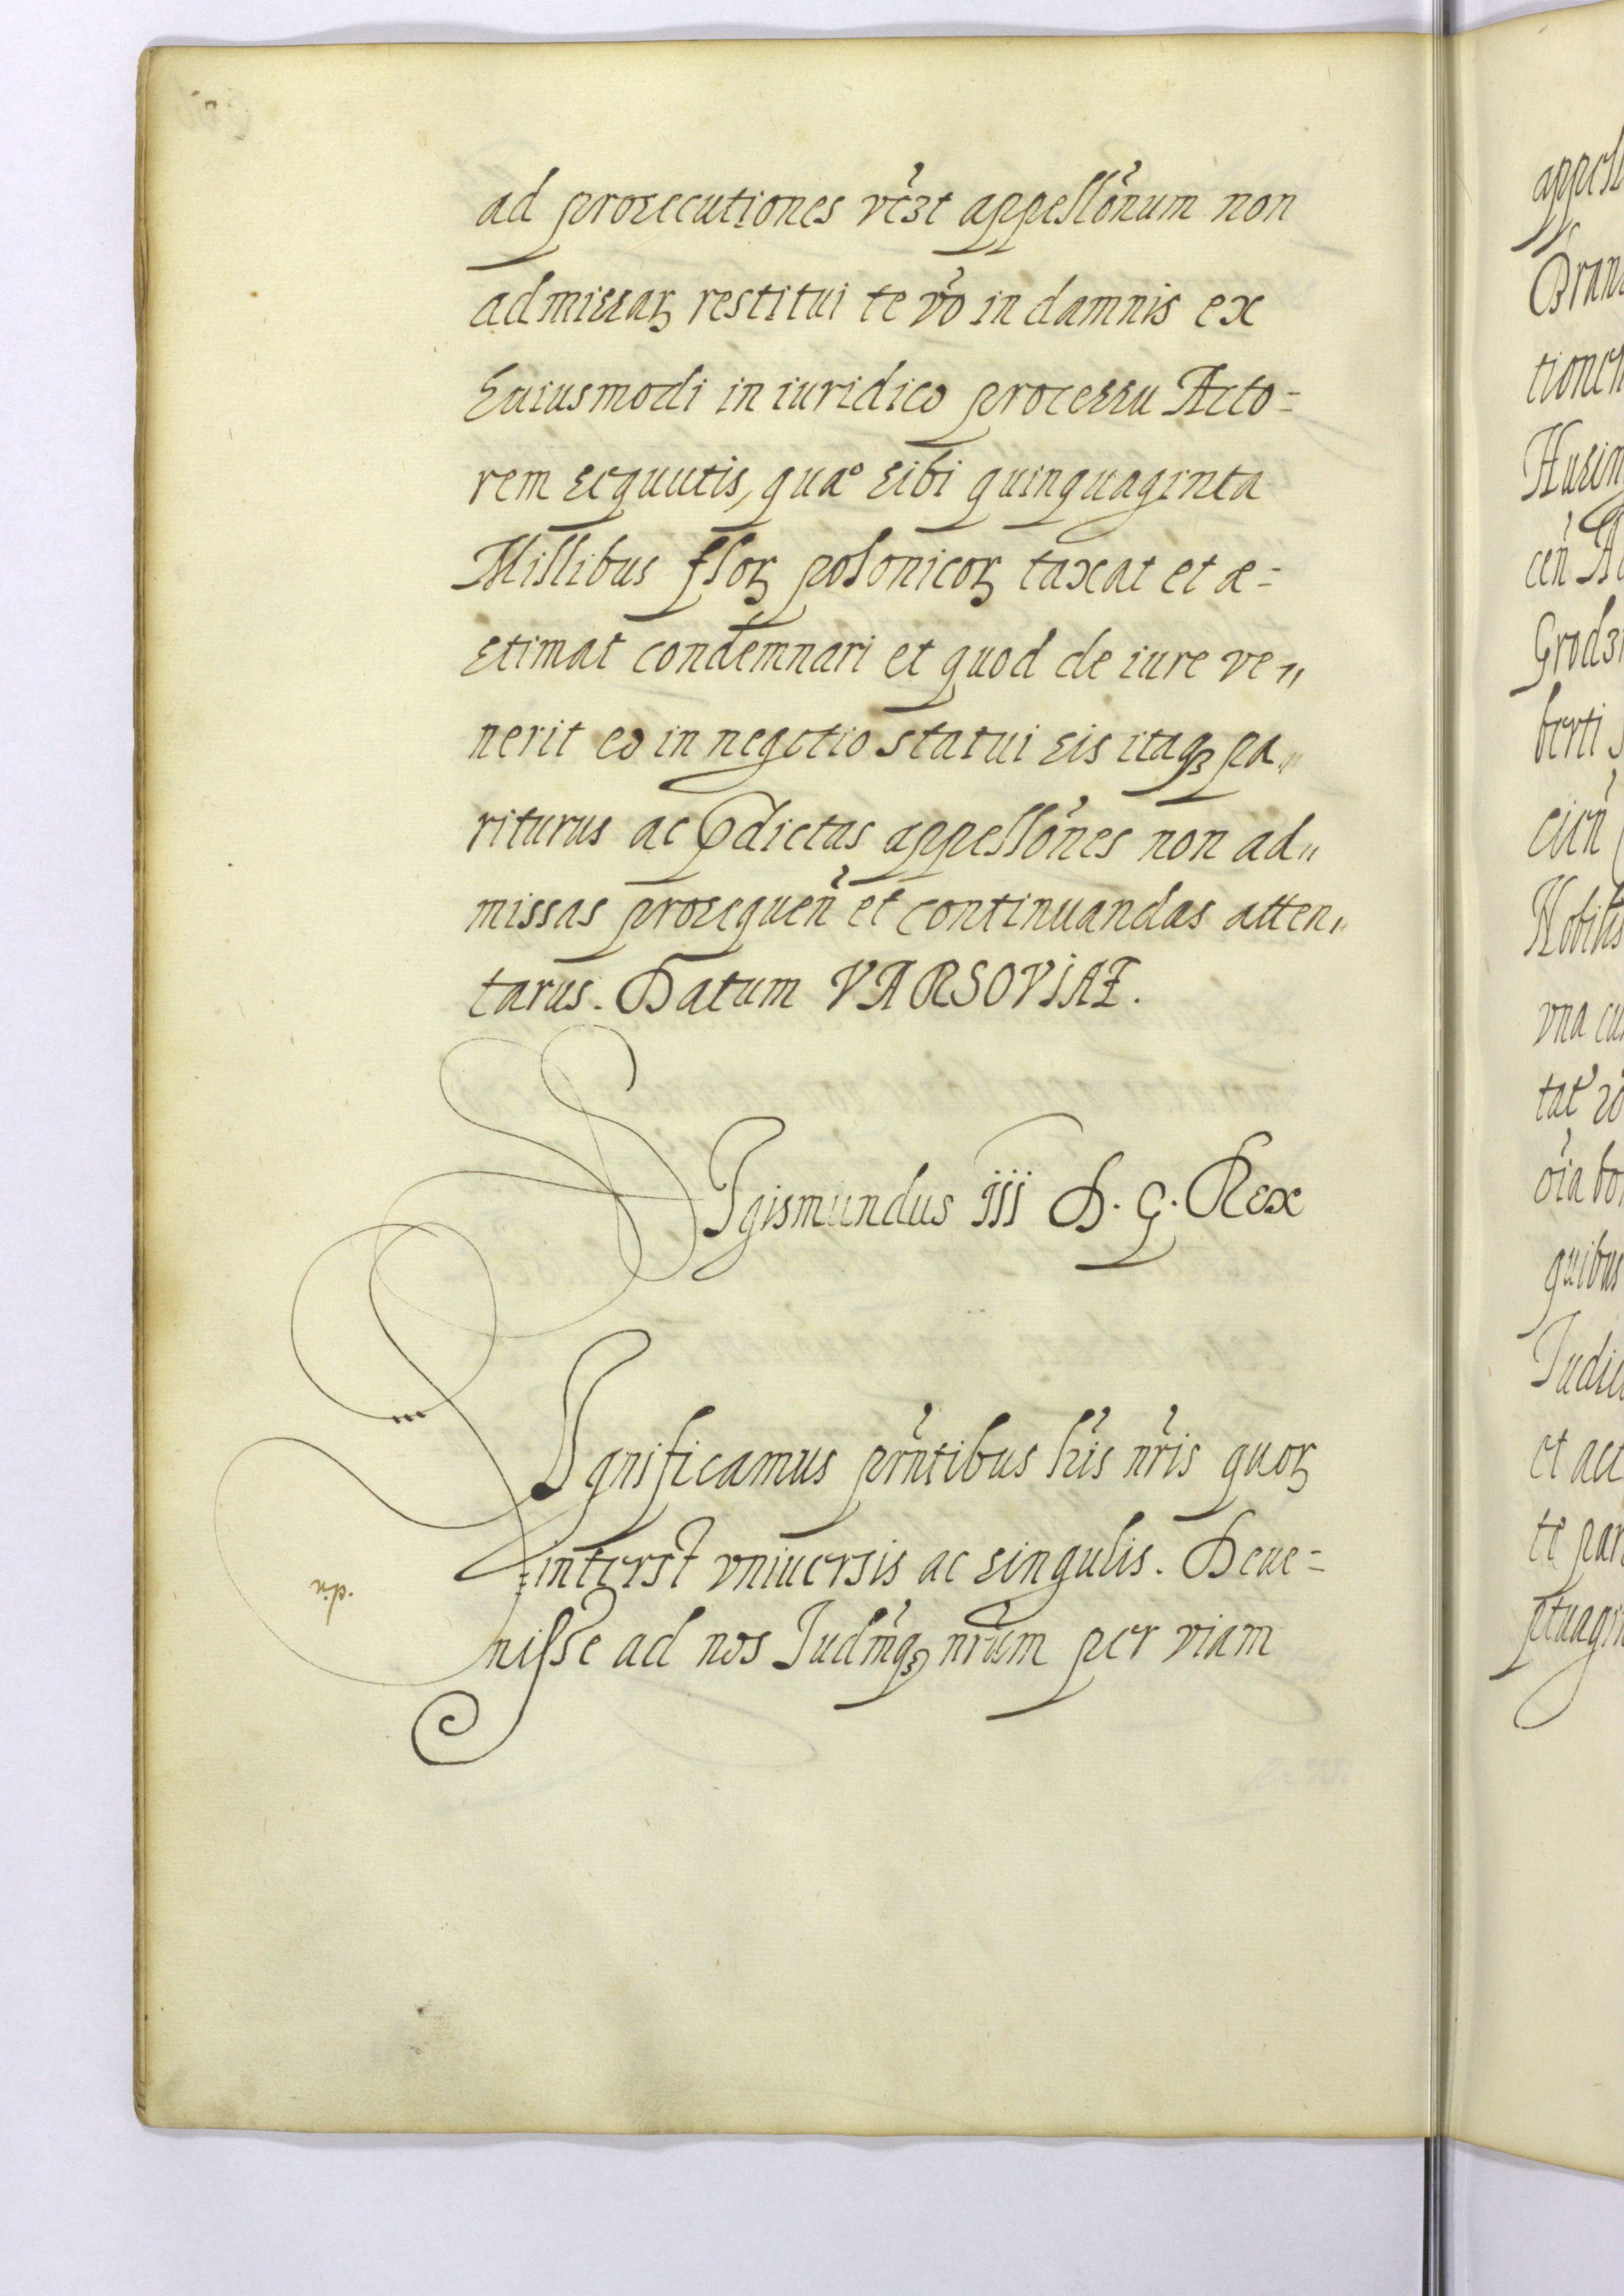 ad prosecutiones vt̃ꝫt appellõnum non
admissaꝝ restitui te võ in damnis ex
huiusmodi in iuridico processu Acto=
rem secquutis, quae sibi quinquaginta
Millibus flоꝝ polonicoꝝ taxat et æ=
stimat condemnari et quod de iure ve„
nerit eo in negotio statui sis itaqꝫ pa„
riturus ac p̃dictas appellões non ad„
missas prosequeñ et continuandas atten„
tarus. Datum VARSOVIAE.
Sigismundus iii D. G. Rex
Significamus pñtibus lr̃is nr̃is quoꝝ
interest vniuersis ac singulis. Deue=
nisse ad nos Iudm̃qꝫ nrũm per viam
appell
Bran
tionem
ceñ A
Grodz
berti
cień
Nobilis
vna cu
tat
oĩa bo
quibus
Iudic
et act
te par
ptuagin